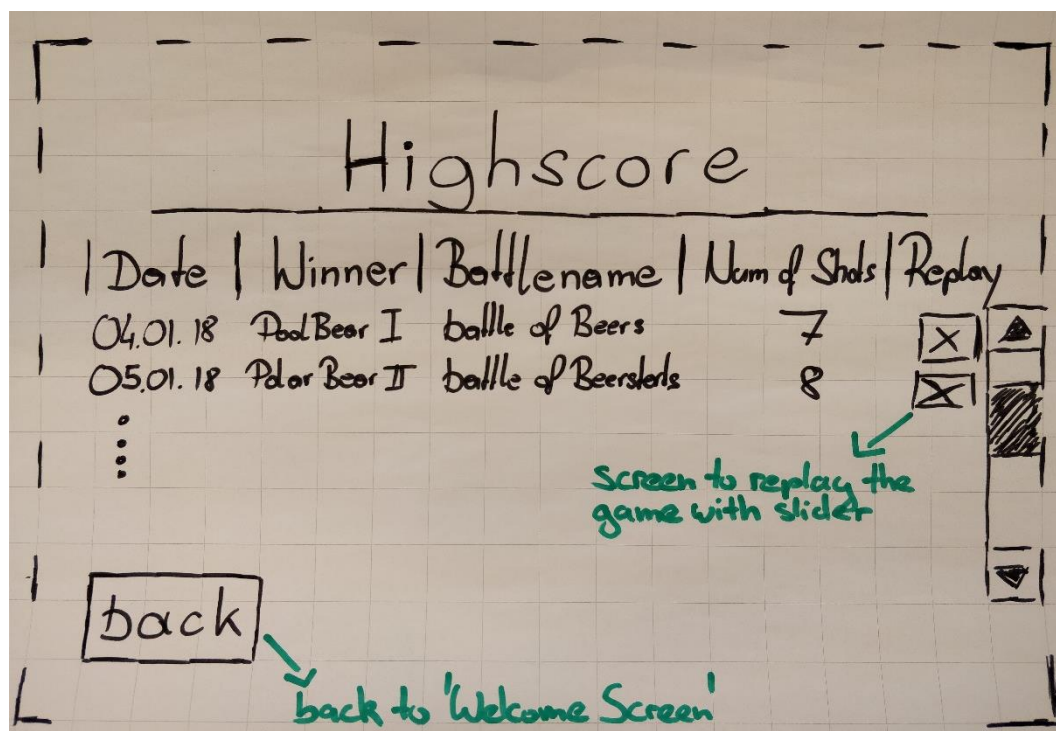 Highscore
| Date | Winner | Battlename | Num of Shots | Replay
04.01.18 PoolBear I battle of Beers 7 X
05.01.18 Polar Bear II battle of Beersterls 8 X
screen to replay the
game with slider
back
back to 'Welcome Screen'